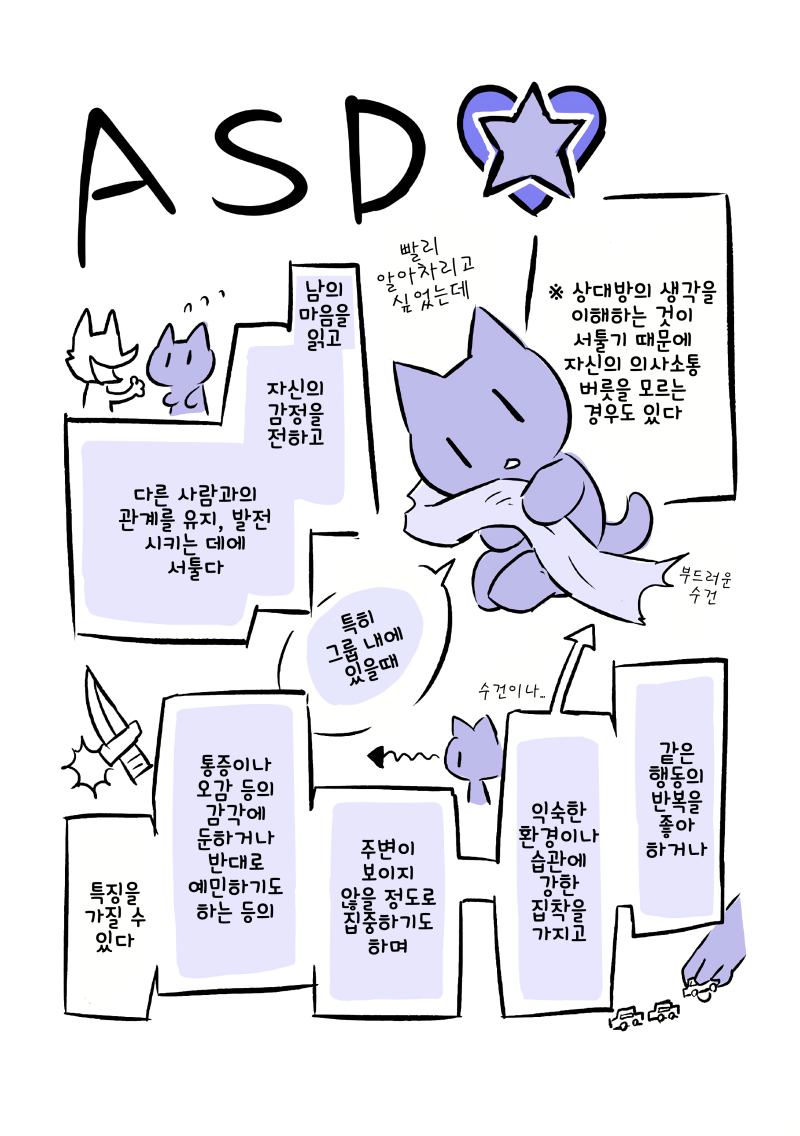 ASD
※ 상대방의 생각을
이해하는 것이
서툴기 때문에
자신의 의사소통
버릇을 모르는
경우도 있다
빨리
알아차리고
싶었는데
남의
마음을
읽고
자신의
감정을
전하고
다른 사람과의
관계를 유지, 발전
시키는 데에
서툴다
특히
그룹 내에
있을때
부드러운
수건
같은
행동의
반복을
좋아
하거나
수건이나...
익숙한
환경이나
습관에
강한
집착을
가지고
주변이
보이지
않을 정도로
집중하기도
하며
통증이나
오감 등의
감각에
둔하거나
반대로
예민하기도
하는 등의
특징을
가질 수
있다